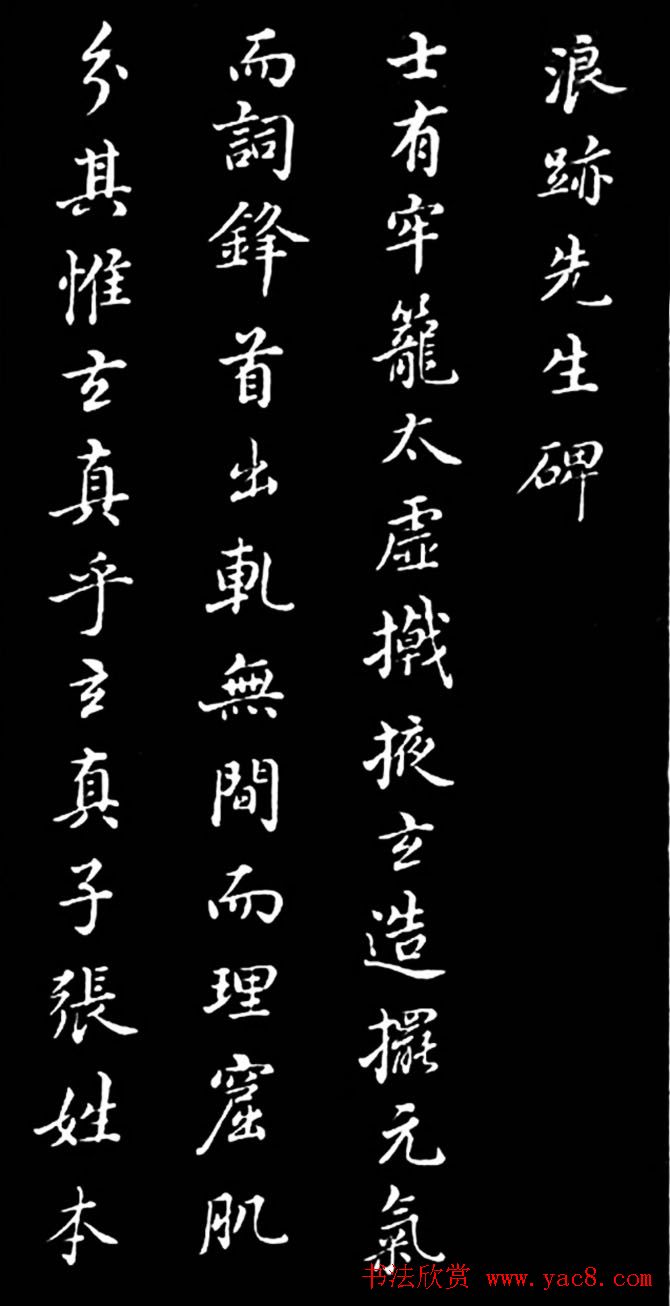 浪跡先生碑
士有牢籠太虛撠掖玄造擺元氣
而詞鋒首出軋無間而理窟肌
分其惟玄真乎玄真子張姓本
书法欣赏 www.yac8.com